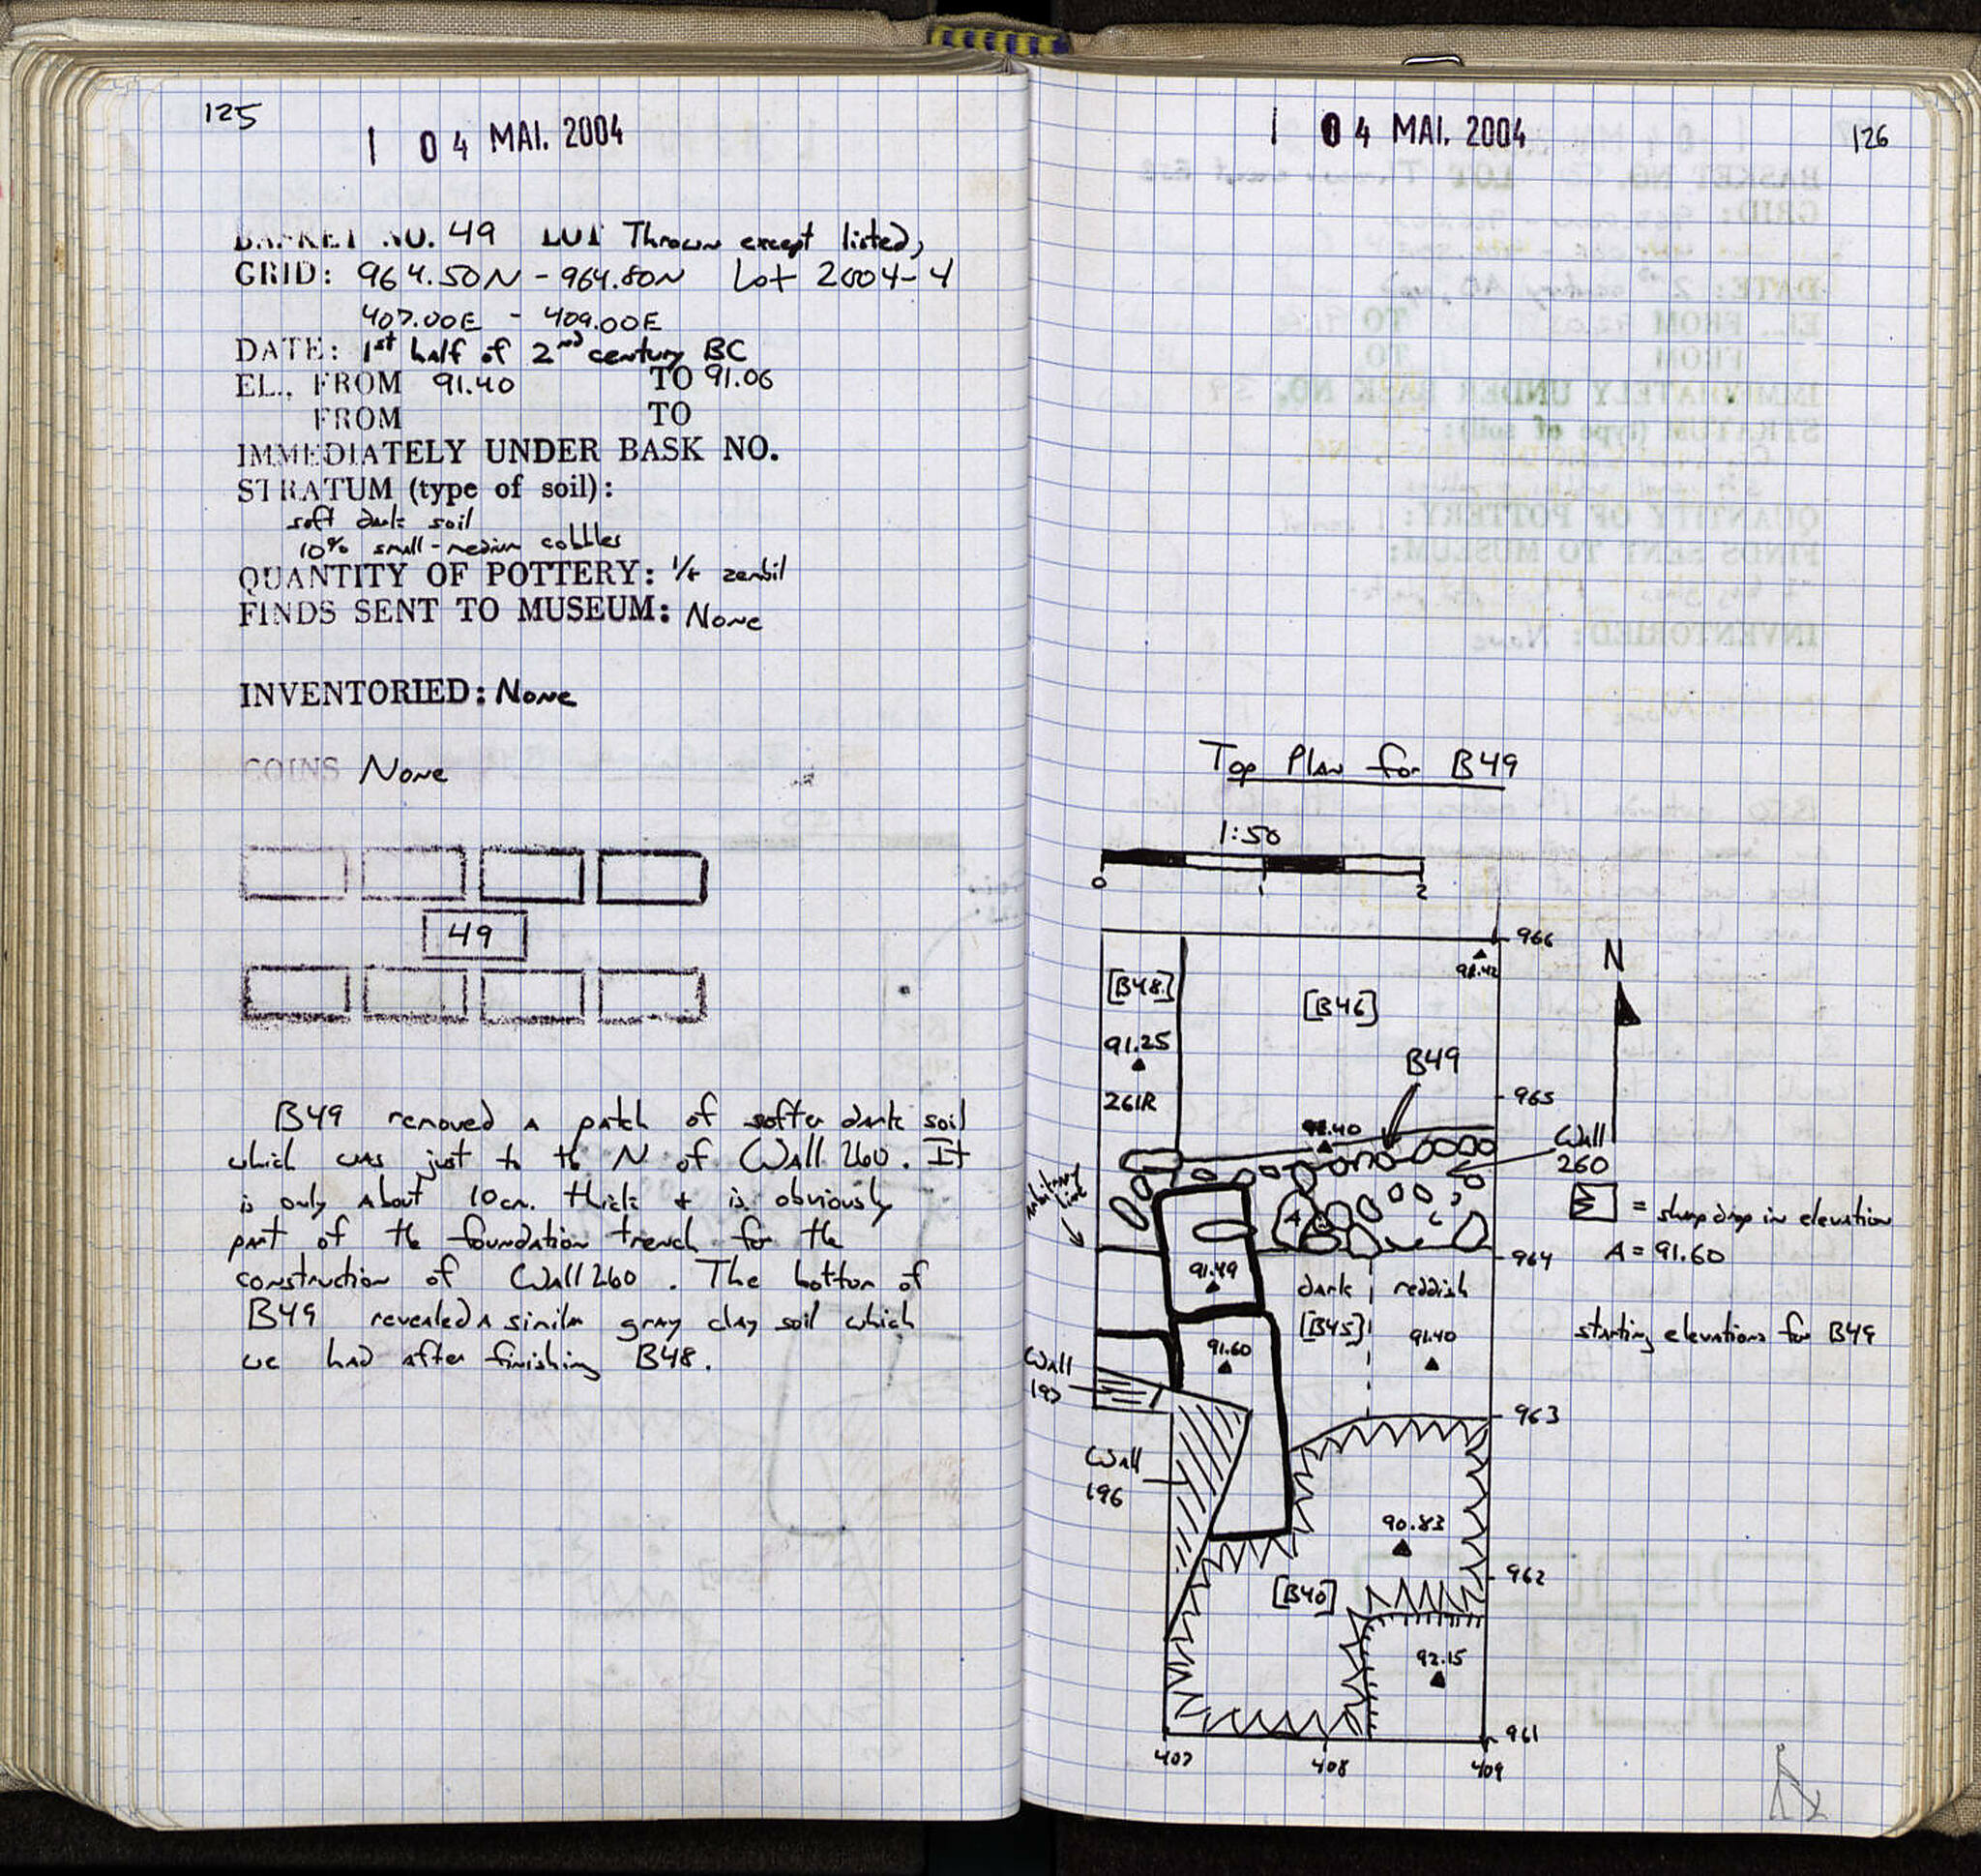 125
1 04 MAI. 2004
BASKET NO. 49 LOT Thrown except listed,
GRID: 964.50N - 964.80N Lot 2004-4
407.00E - 409.00E
DATE: 1st half of 2nd century BC
EL., FROM 91.40 TO 91.06
FROM TO
IMMEDIATELY UNDER BASK NO.
STRATUM (type of soil):
soft dark soil
10% small-medium cobbles
QUANTITY OF POTTERY: zembil
FINDS SENT TO MUSEUM: None
INVENTORIED: None
COINS None
49
B49 removed a patch of softer dark soil
which was just to the N of Wall 260. It
is only about 10cm. thick + is obviously
part of the foundation trench for the
construction of Wall 260. The bottom of
B49 revealed a similar gray clay soil which
we had after finishing B48.
1 04 MAI. 2004
126
Top Plan for B49
1:50
0 1 2
966
N
[B48]
[B46]
91.25
B49
261R
965
Wall
260
arbitrary
line
= sharp drop in elevation
A
964
A = 91.60
91.49
dark reddish
[B45]
91.40
starting elevations for B49
91.60
Wall
197
963
Wall
196
90.83
962
[B40]
92.15
961
407 408 409